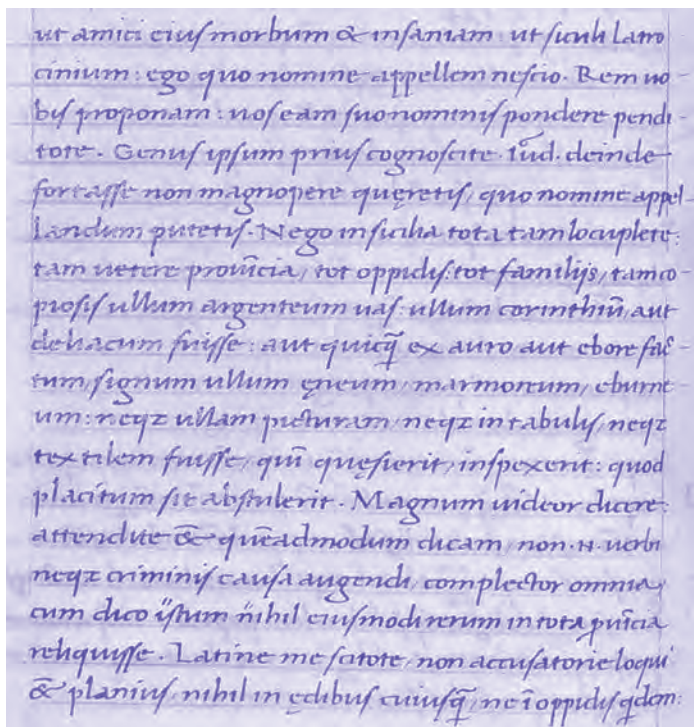 ut amici eiuſ morbum & inſaniam: ut ſiculi Latro
cinium: ego quo nomine appellem neſcio. Rem uo-
biſ proponam: uoſ eam ſuo nominiſ pondere pendi-
tote. Genuſ ipſum priuſ cognoſcite. Iud. deinde
fortaſſe non magnopere quęretiſ, quo nomine appel-
landum putetiſ. Nego in ſicilia tota tam locuplete:
tam uetere prouĩcia, tot oppidiſ: tot familijſ, tam co-
pioſiſ ullum argenteum uaſ: ullum corinthiũ, aut
deliacum fuiſſe: aut quicq̃ ex auro aut ebore fac-
tum, ſignum ullum ęneum, marmoreum, eburne-
um: neqz ullam picturam, neqz in tabuliſ, neqz
textilem fuiſſe, quĩ quęſierit, inſpexerit: quod
placitum ſit abſtulerit. Magnum uideor dicere:
attendite & quẽadmodum dicam, non .N. uerbi
neqz criminiſ cauſa augendi, complector omnia,
cum dico iſtum nihil eiuſmodi rerum in tota ꝓuĩcia
reliquiſſe. Latine me ſcitote, non accuſatorie loqui
& planiuſ, nihil in ędibuſ cuiuſq̃, ne ĩ oppidiſ qdem: